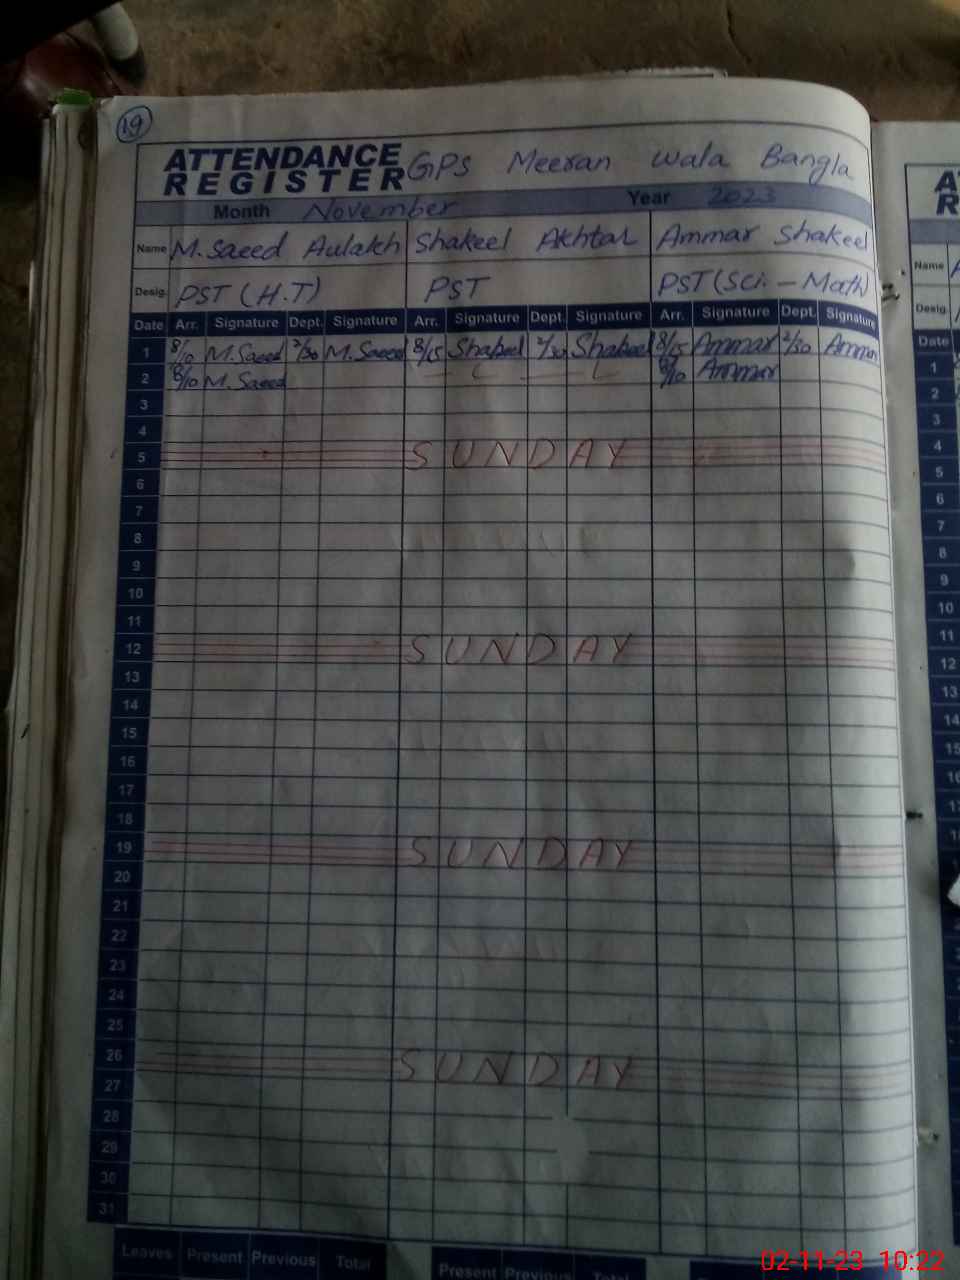 19
ATTENDANCE REGISTER GPS Meeran Wala Bangla
Month November Year 2023
Name M. Saeed Aulakh Shakeel Akhtar Ammar Shakeel
Desig. PST (H.T) PST PST (Sci. - Math)
Date Arr. Signature Dept. Signature Arr. Signature Dept. Signature Arr. Signature Dept. Signature
1 8/10 M. Saeed 2/30 M. Saeed 8/15 Shakeel 2/30 Shakeel 8/15 Ammar 2/30 Ammar
2 8/10 M. Saeed — L — L 8/10 Ammar
3
4
5 SUNDAY
6
7
8
9
10
11
12 SUNDAY
13
14
15
16
17
18
19 SUNDAY
20
21
22
23
24
25
26 SUNDAY
27
28
29
30
31
Leaves Present Previous Total Present Previous Total
Name
Desig.
Date
1
2
3
4
5
6
7
8
9
10
11
12
13
14
15
16
02-11-23 10:22